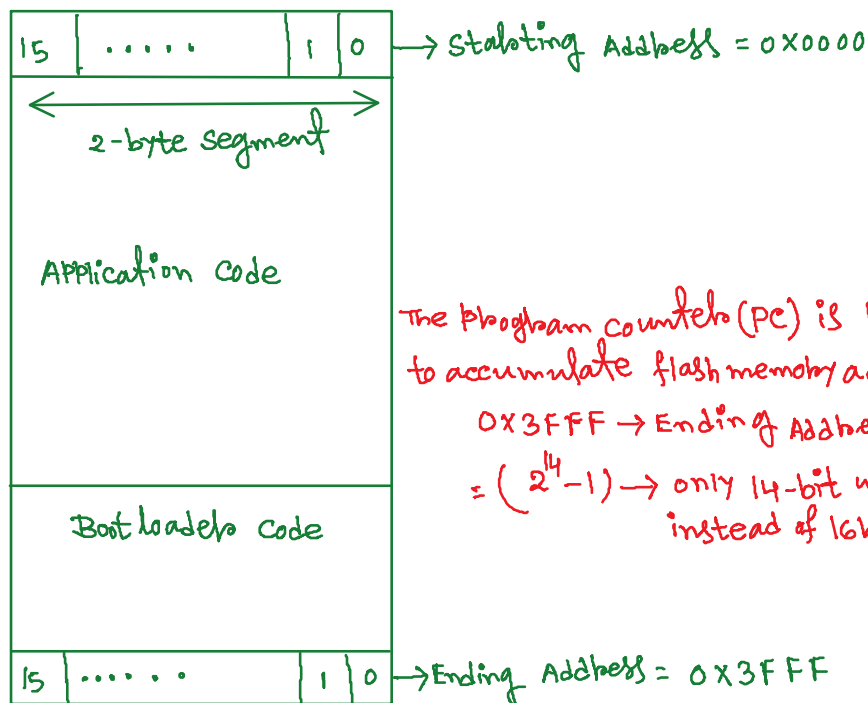 15 ..... 1 0 → Starting Address = 0x0000
2-byte segment
Application code
The program counter (PC) is
to accumulate flash memory
0x3FFF → Ending
= (2^14-1) → only 14-bit
instead of
Bootloader code
15 ...... 1 0 → Ending Address = 0x3FFF